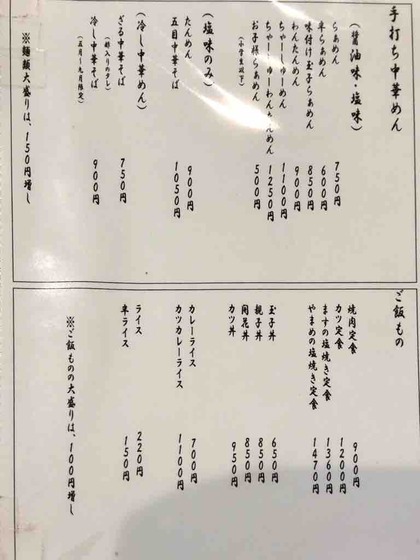 手打ち中華めん
(醤油味・塩味)
らぁめん 750円
半らぁめん 600円
味付け玉子らぁめん 850円
わんたんめん 900円
ちゃーしゅーめん 1100円
ちゃーしゅーわんたんめん 1250円
お子様らぁめん 500円
(小学生以下)
(塩味のみ)
たんめん 900円
五目中華そば 1050円
(冷し中華めん)
ざる中華そば 750円
(酢入りのタレ)
冷し中華そば 900円
(五月〜九月限定)
※麺類大盛りは、150円増し
ご飯もの
焼肉定食 900円
カツ定食 1200円
ますの塩焼き定食 1360円
やまめの塩焼き定食 1470円
玉子丼 650円
親子丼 850円
開花丼 850円
カツ丼 950円
カレーライス 700円
カツカレーライス 1100円
ライス 220円
半ライス 150円
※ご飯ものの大盛りは、100円増し